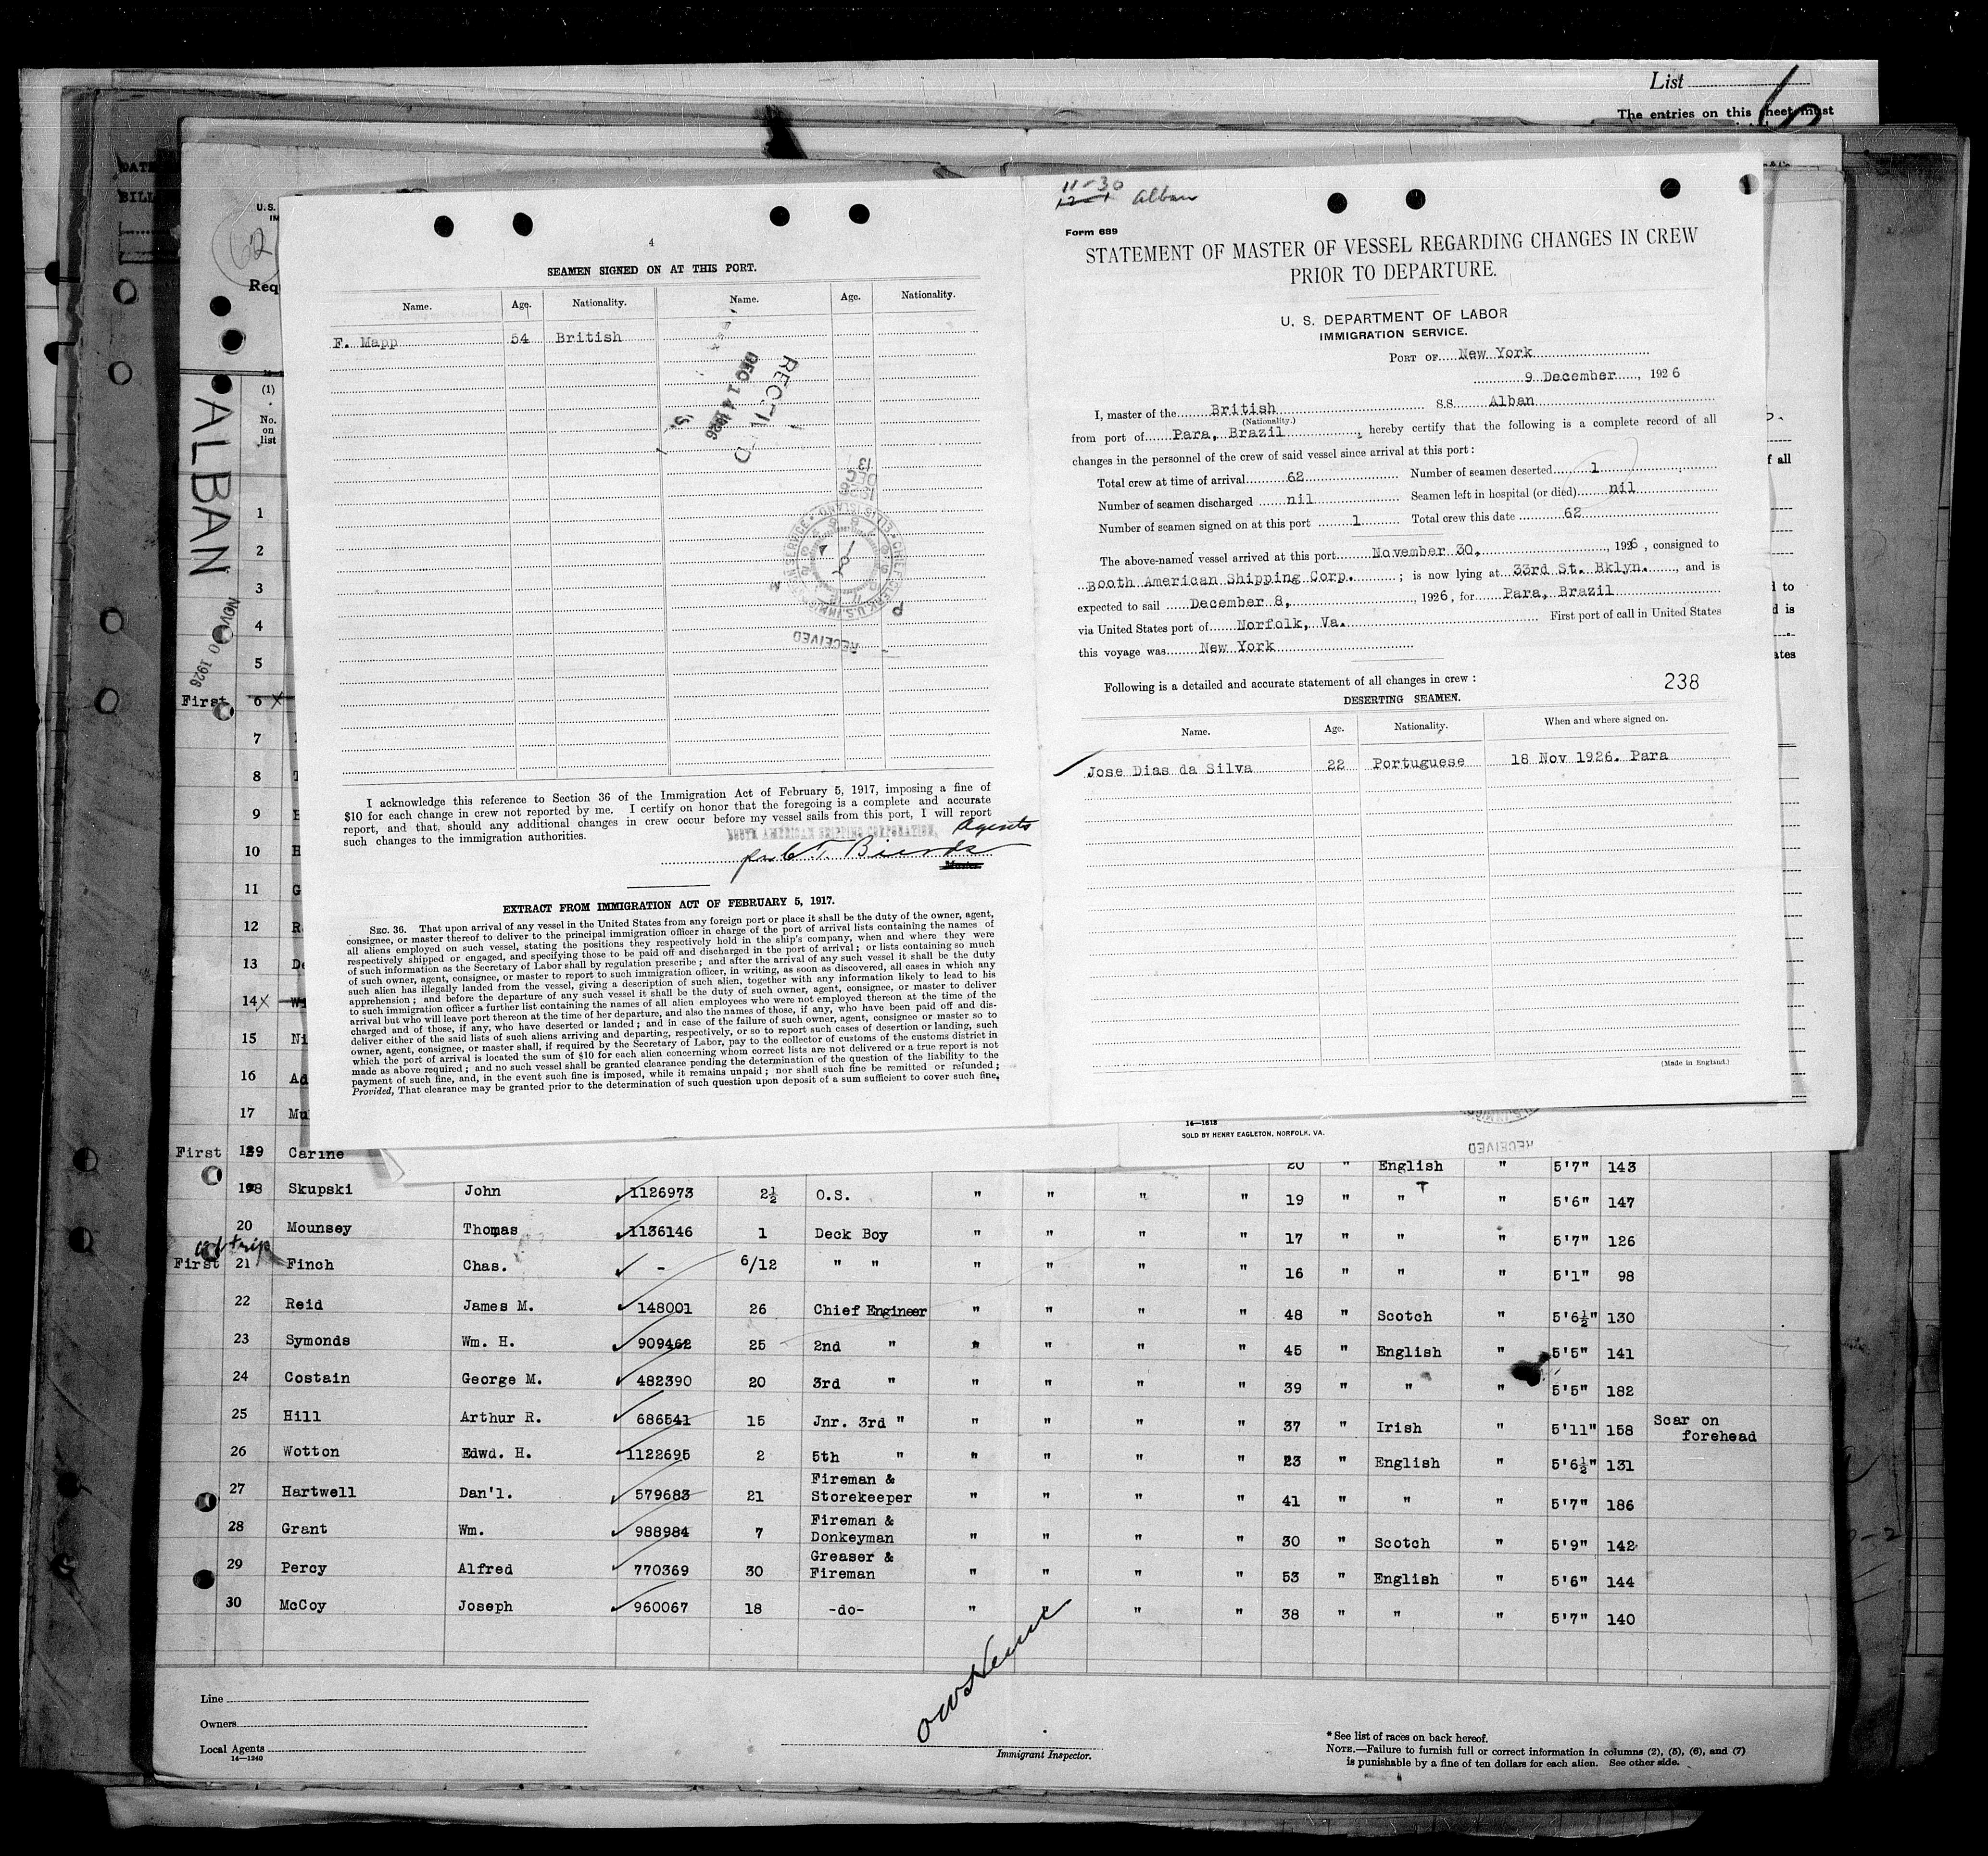 List
The entries on this sheet must
DATE
BILL
U.S.
62
Req
(1)
No.
on
list
ALBAN
NOV 30 1926
11-30
12-1 Alban
4
SEAMEN SIGNED ON AT THIS PORT.
Name. Age. Nationality. Name. Age. Nationality.
F. Mapp 54 British
DEC 14 1926
1926
DEC
13
RECEIVED
I acknowledge this reference to Section 36 of the Immigration Act of February 5, 1917, imposing a fine of
$10 for each change in crew not reported by me. I certify on honor that the foregoing is a complete and accurate
report, and that, should any additional changes in crew occur before my vessel sails from this port, I will report
such changes to the immigration authorities.
BOOTH AMERICAN SHIPPING CORPORATION, Agents
Master.
EXTRACT FROM IMMIGRATION ACT OF FEBRUARY 5, 1917.
SEC. 36. That upon arrival of any vessel in the United States from any foreign port or place it shall be the duty of the owner, agent,
consignee, or master thereof to deliver to the principal immigration officer in charge of the port of arrival lists containing the names of
all aliens employed on such vessel, stating the positions they respectively hold in the ship's company, when and where they were
respectively shipped or engaged, and specifying those to be paid off and discharged in the port of arrival; or lists containing so much
of such information as the Secretary of Labor shall by regulation prescribe; and after the arrival of any such vessel it shall be the duty
of such owner, agent, consignee, or master to report to such immigration officer, in writing, as soon as discovered, all cases in which any
such alien has illegally landed from the vessel, giving a description of such alien, together with any information likely to lead to his
apprehension; and before the departure of any such vessel it shall be the duty of such owner, agent, consignee, or master to deliver
to such immigration officer a further list containing the names of all alien employees who were not employed thereon at the time of the
arrival but who will leave port thereon at the time of her departure, and also the names of those, if any, who have been paid off and dis-
charged and of those, if any, who have deserted or landed; and in case of the failure of such owner, agent, consignee or master so to
deliver either of the said lists of such aliens arriving and departing, respectively, or so to report such cases of desertion or landing, such
owner, agent, consignee, or master shall, if required by the Secretary of Labor, pay to the collector of customs of the customs district in
which the port of arrival is located the sum of $10 for each alien concerning whom correct lists are not delivered or a true report is not
made as above required; and no such vessel shall be granted clearance pending the determination of the question of the liability to the
payment of such fine, and, in the event such fine is imposed, while it remains unpaid; nor shall such fine be remitted or refunded;
Provided, That clearance may be granted prior to the determination of such question upon deposit of a sum sufficient to cover such fine.
Form 689
STATEMENT OF MASTER OF VESSEL REGARDING CHANGES IN CREW
PRIOR TO DEPARTURE.
U. S. DEPARTMENT OF LABOR
IMMIGRATION SERVICE.
PORT OF New York
9 December, 1926
I, master of the British SS Alban
(Nationality.)
from port of Para, Brazil, hereby certify that the following is a complete record of all
changes in the personnel of the crew of said vessel since arrival at this port:
Total crew at time of arrival 62 Number of seamen deserted 1
Number of seamen discharged nil Seamen left in hospital (or died) nil
Number of seamen signed on at this port 1 Total crew this date 62
The above-named vessel arrived at this port November 30, 1926, consigned to
Booth American Shipping Corp.; is now lying at 33rd St. Bklyn., and is
expected to sail December 8, 1926, for Para, Brazil
via United States port of Norfolk, Va. First port of call in United States
this voyage was New York
Following is a detailed and accurate statement of all changes in crew:
238
DESERTING SEAMEN.
Name. Age. Nationality. When and where signed on.
Jose Dias da Silva 22 Portuguese 18 Nov 1926. Para
(Made in England.)
16—1618
SOLD BY HENRY EAGLETON, NORFOLK, VA.
RECEIVED
f all
d to
d is
ates
1
2
3
4
5
First 6 X
7
8
9
10
11
12
13
14 X
15
16
17
First 189 Carine 20 " English " 5'7" 143
198 Skupski John 1126973 2½ O.S. " " " " 19 " " " 5'6" 147
20 Mounsey Thomas 1136146 1 Deck Boy " " " " 17 " " " 5'7" 126
1st trip
First 21 Finch Chas. - 6/12 " " " " " " 16 " " " 5'1" 98
22 Reid James M. 148001 26 Chief Engineer " " " " 48 " Scotch " 5'6½" 130
23 Symonds Wm. H. 909462 25 2nd " " " " " 45 " English " 5'5" 141
24 Costain George M. 482390 20 3rd " " " " " 39 " " " 5'5" 182
25 Hill Arthur R. 686541 15 Jnr. 3rd " " " " " 37 " Irish " 5'11" 158 Scar on
forehead
26 Wotton Edwd. H. 1122695 2 5th " " " " " 23 " English " 5'6½" 131
27 Hartwell Dan'l. 579683 21 Fireman &
Storekeeper " " " " 41 " " " 5'7" 186
28 Grant Wm. 988984 7 Fireman &
Donkeyman " " " " 30 " Scotch " 5'9" 142
29 Percy Alfred 770369 30 Greaser &
Fireman " " " " 53 " English " 5'6" 144
30 McCoy Joseph 960067 18 -do- " " " " 38 " " " 5'7" 140
Line
Owners
Local Agents
14—1240
Immigrant Inspector.
*See list of races on back hereof.
NOTE.—Failure to furnish full or correct information in columns (2), (5), (6), and (7)
is punishable by a fine of ten dollars for each alien. See other side.